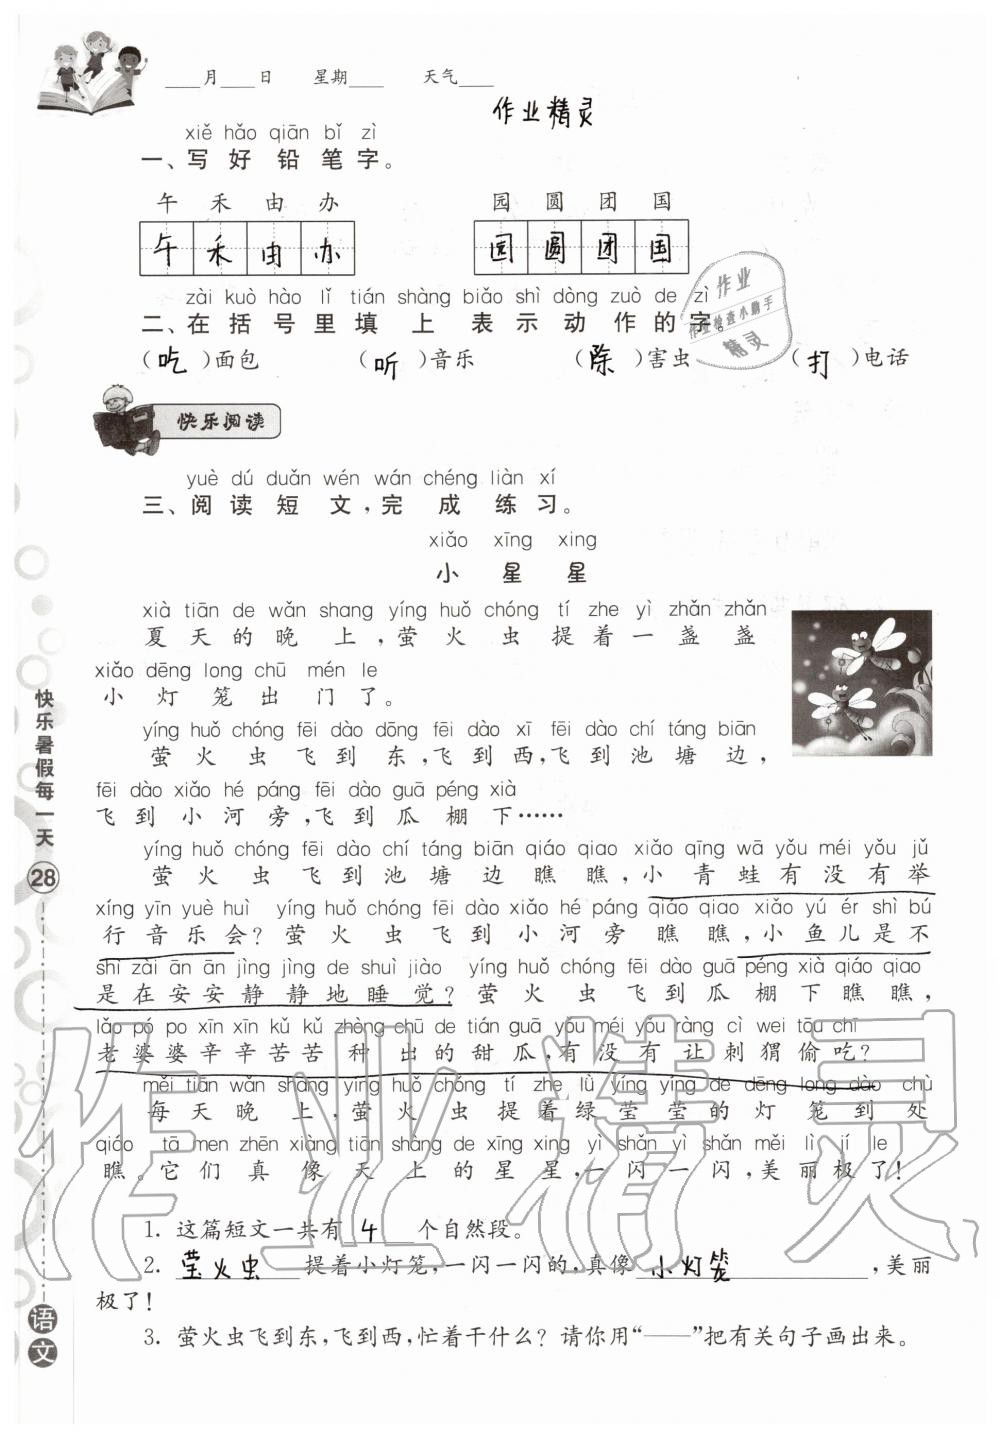 ____月____日 星期____ 天气____
作业精灵
xiě hǎo qiān bǐ zì
一、写好铅笔字。
午 禾 由 办 园 圆 团 国
午 禾 由 办 园 圆 团 国
zài kuò hào lǐ tián shàng biǎo shì dòng zuò de zì
二、在括号里填上表示动作的字
(吃)面包 (听)音乐 (除)害虫 (打)电话
作业
作业检查小助手
精灵
快乐阅读
yuè dú duǎn wén wán chéng liàn xí
三、阅读短文,完成练习。
xiǎo xīng xing
小星星
xià tiān de wǎn shang yíng huǒ chóng tí zhe yì zhǎn zhǎn
夏天的晚上,萤火虫提着一盏盏
xiǎo dēng long chū mén le
小灯笼出门了。
yíng huǒ chóng fēi dào dōng fēi dào xī fēi dào chí táng biān
萤火虫飞到东,飞到西,飞到池塘边,
fēi dào xiǎo hé páng fēi dào guā péng xià
飞到小河旁,飞到瓜棚下……
yíng huǒ chóng fēi dào chí táng biān qiáo qiao xiǎo qīng wā yǒu méi yǒu jǔ
萤火虫飞到池塘边瞧瞧,小青蛙有没有举
xíng yīn yuè huì yíng huǒ chóng fēi dào xiǎo hé páng qiáo qiao xiǎo yú ér shì bú
行音乐会?萤火虫飞到小河旁瞧瞧,小鱼儿是不
shì zài ān ān jìng jìng de shuì jiào yíng huǒ chóng fēi dào guā péng xià qiáo qiao
是在安安静静地睡觉?萤火虫飞到瓜棚下瞧瞧,
lǎo pó po xīn xīn kǔ kǔ zhòng chū de tián guā yǒu méi yǒu ràng cì wei tōu chī
老婆婆辛辛苦苦种出的甜瓜,有没有让刺猬偷吃?
měi tiān wǎn shang yíng huǒ chóng tí zhe lǜ yíng yíng de dēng long dào chù
每天晚上,萤火虫提着绿莹莹的灯笼到处
qiáo tā men zhēn xiàng tiān shang de xīng xing yì shǎn yì shǎn měi lì jí le
瞧。它们真像天上的星星,一闪一闪,美丽极了!
1. 这篇短文一共有 4 个自然段。
2. 萤火虫 提着小灯笼,一闪一闪的,真像 小灯笼 ,美丽
极了!
3. 萤火虫飞到东,飞到西,忙着干什么?请你用“——”把有关句子画出来。
快乐暑假每一天
28
语文
作业精灵